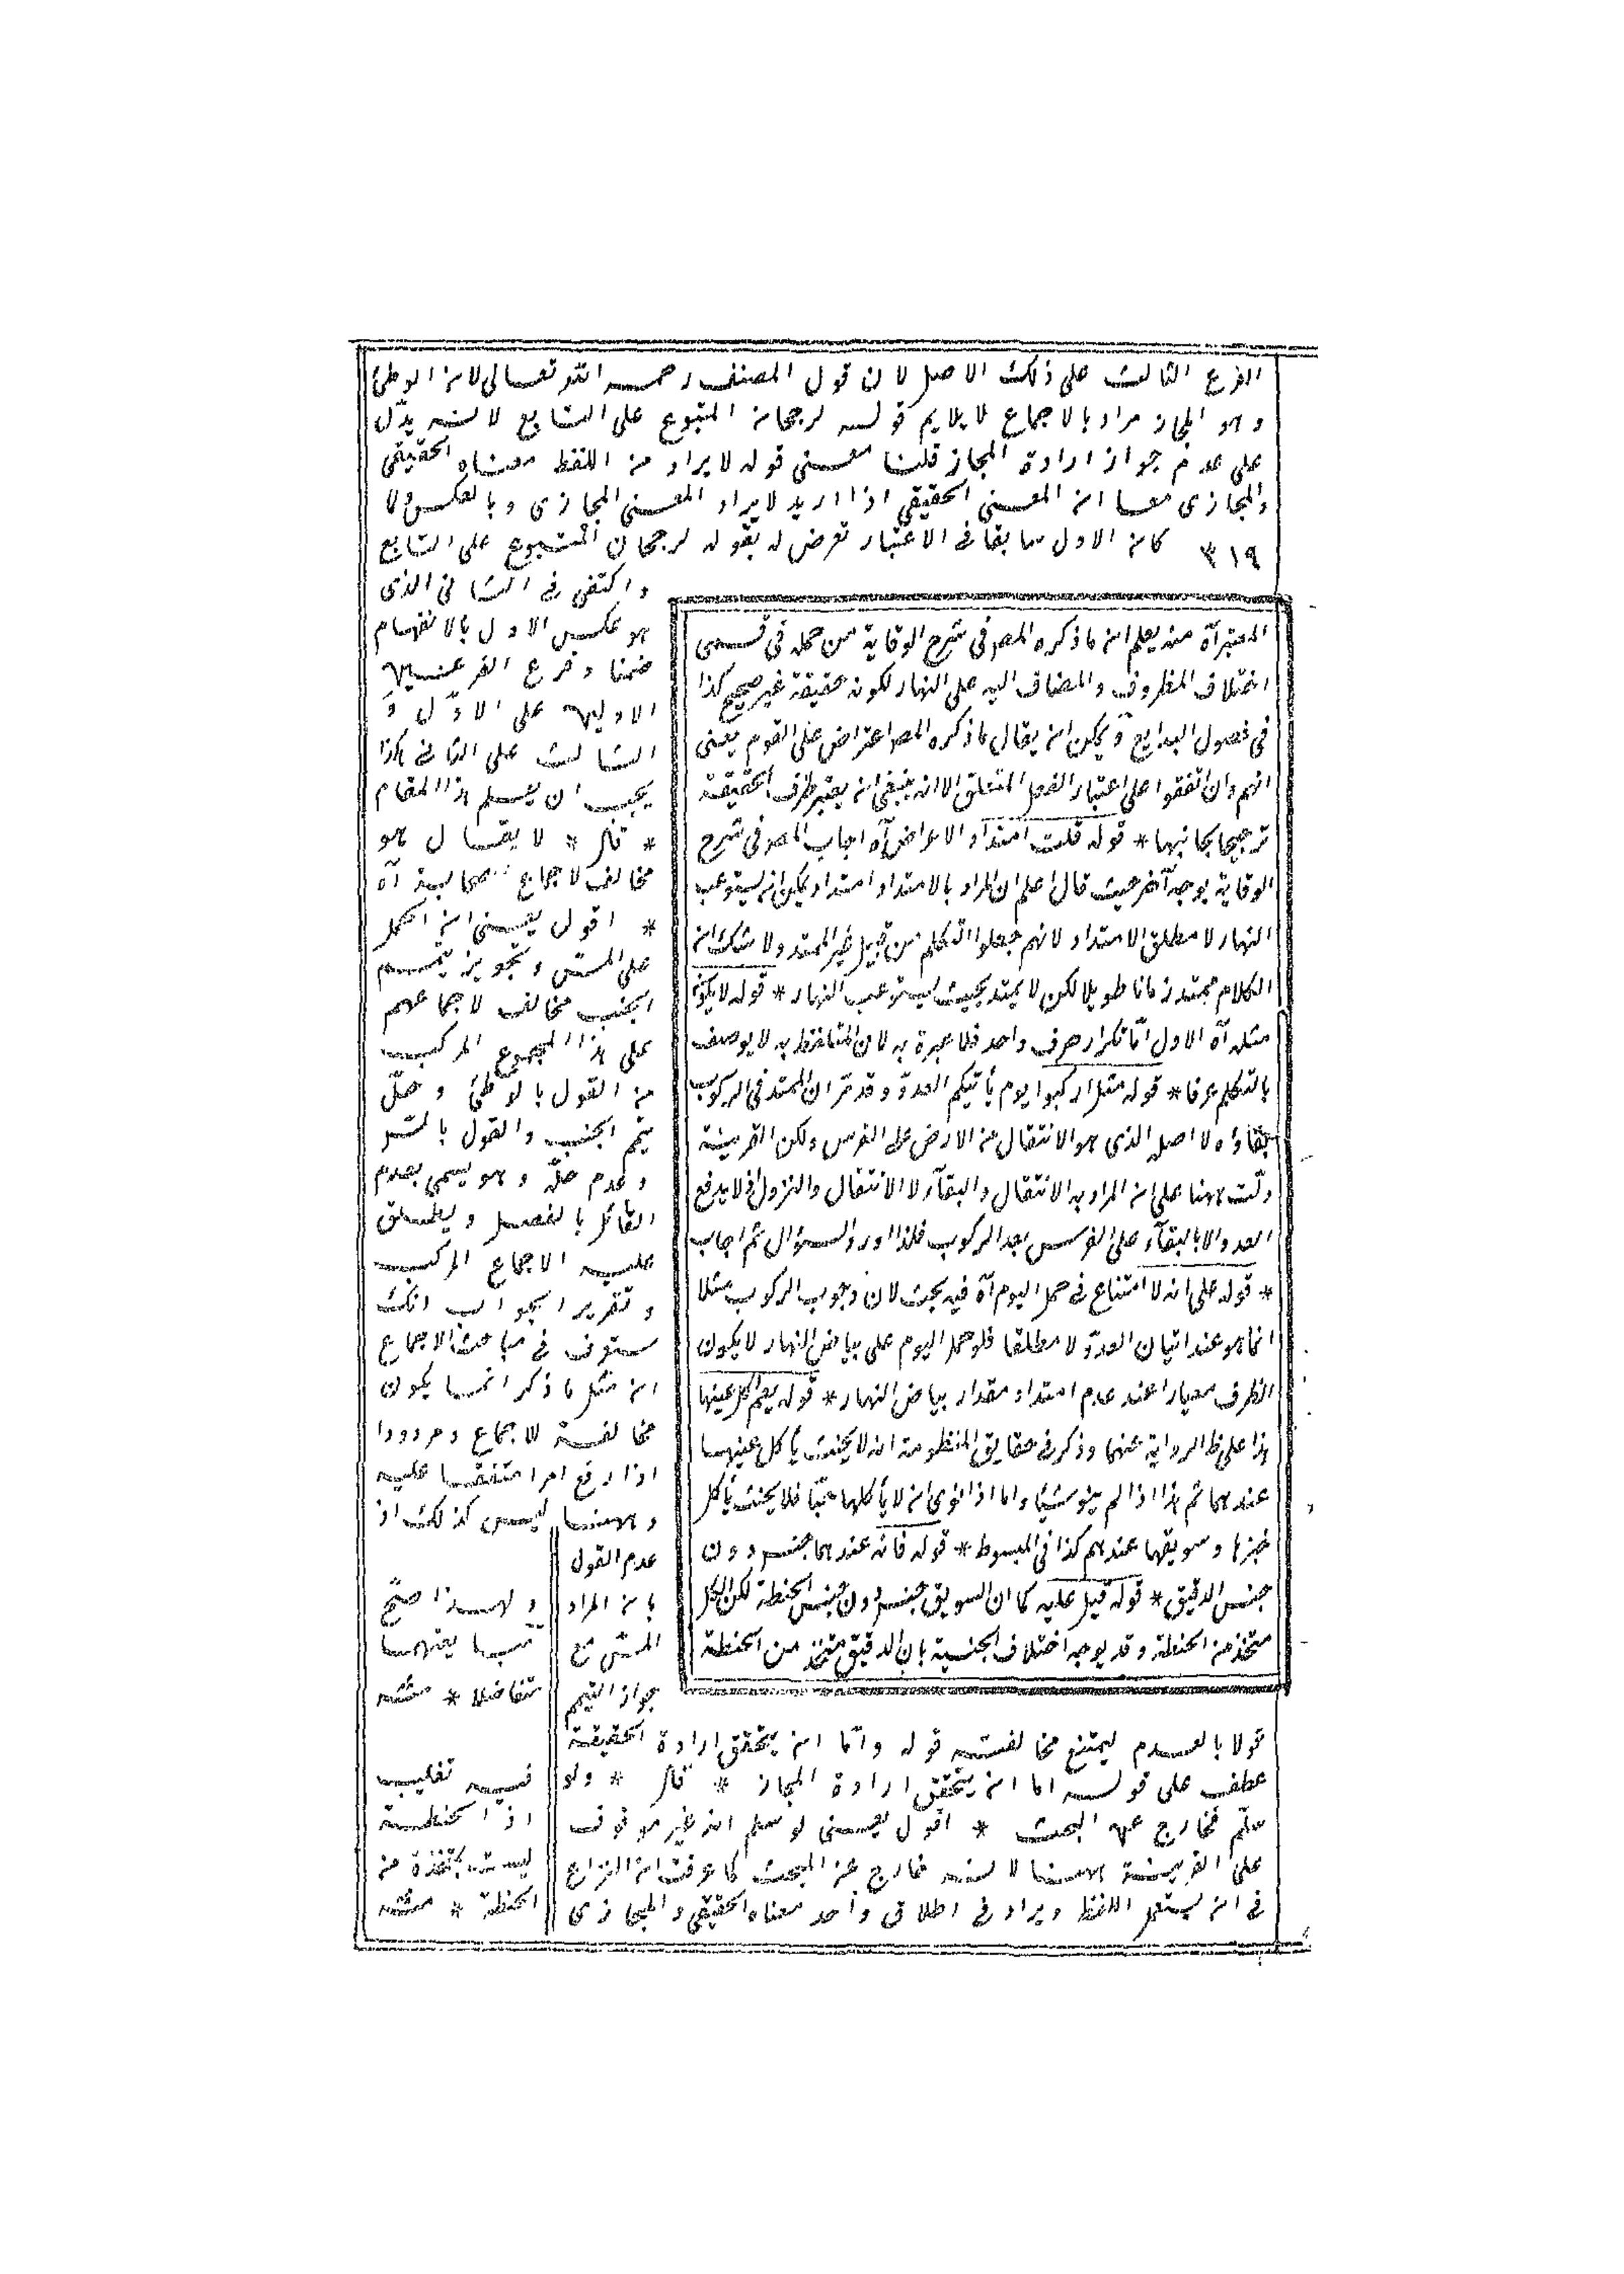 الفرع الثالث على ذلك الاصل لان قول المصنف رحمه الله تعالى لان الوطئ
وهو المجاز مراد بالاجماع لا يلايم قوله لرجحان المتبوع على التابع لانه يدل
على عدم جواز ارادة المجاز قلنا معنى قوله لا يراد من اللفظ معناه الحقيقى
والمجازى معا ان المعنى الحقيقى اذا اريد لا يراد المعنى المجازى وبالعكس ولا
كان الاول سابقا فى الاعتبار تعرض له بقوله لرجحان المتبوع على التابع
٣١٩
واكتفى فى الثانى الذى
هو عكس الاول بالانفهام
ضمنا وفرع الفرعين
الاولين على الاول و
الثالث على الثانى هكذا
يجب ان يعلم هذا المقام
* قال * لا يقال هو
مخالف لاجماع الصحابة آه
* اقول يعنى ان الحمل
على المس وتجويز تيمم
الجنب مخالف لاجماعهم
على هذا المجموع المركب
من القول بالوطئ وحل
تيمم الجنب والقول بالمس
وعدم حله وهو يسمى بعدم
القائل بالفصل ويطلق
عليه الاجماع المركب
وتقرير الجواب انك
ستعرف فى مباحث الاجماع
ان مثل ما ذكر انما يكون
مخالفة للاجماع ومردودا
اذا رفع امرا متفقا عليه
وههنا ليس كذلك اذ
عدم القول
بان المراد
المس مع
جواز التيمم
قولا بالعدم ليمتنع مخالفته قوله واما ان يتحقق ارادة الحقيقة
عطف على قوله اما ان يتحقق ارادة المجاز * قال * ولو
سلم فخارج عن البحث * اقول يعنى لو سلم انه غير موقوف
على القرينة ههنا لانه خارج عن البحث كما عرفت ان النزاع
فى ان يستعمل اللفظ ويراد فى اطلاق واحد معناه الحقيقى والمجازى
المعتبر آه منه يعلم ان ما ذكره المص فى شرح الوقاية من حمله فى قسمى
اختلاف المظروف والمضاف اليه على النهار لكونه حقيقة غير صحيح كذا
فى فصول البدايع ويمكن ان يقال ما ذكره المص اعتراض على القوم يعنى
انهم وان اتفقوا على اعتبار الفعل المتعلق الا انه ينبغى ان يعتبر طرف الحقيقة
ترجيحا بجانبها * قوله قلت امتداد الاعراض آه اجاب المص فى شرح
الوقاية بوجه آخر حيث قال اعلم ان المراد بالامتداد امتداد يمكن ان يستوعب
النهار لا مطلق الامتداد لانهم جعلوا التكلم من قبيل غير الممتد ولا شك ان
الكلام ممتد زمانا طويلا لكن لا يمتد بحيث يستوعب النهار * قوله لا يكون
مثله آه الاول اما تكرار حرف واحد فلا عبرة به لان المتلفظ به لا يوصف
بالتكلم عرفا * قوله مثل اركبوا يوم يأتيكم العدو وقد تقر ان الممتد فى الركوب
بقاؤه لا اصله الذى هو الانتقال من الارض على الفرس ولكن القرينة
دلت ههنا على ان المراد به الانتقال والبقآء لا الانتقال والنزول فلا يدفع
العدو الا بالبقآء على الفرس بعد الركوب فلذا اورد السؤال ثم اجاب
* قوله على انه لا امتناع فى حمل اليوم آه فيه بحث لان وجوب الركوب مثلا
انما هو عند اتيان العدو لا مطلقا فلو حمل اليوم على بياض النهار لا يكون
الظرف معيارا عند عدم امتداد مقدار بياض النهار * قوله يعم اكل عينها
هذا على ظ الرواية عنهما وذكر فى حقايق المنظومة انه لا يحنث بأكل عينها
عندهما ثم هذا اذا لم ينو شيئا واما اذا نوى ان لا يأكلها حبا فلا يحنث بأكل
خبزها وسويقها عندهم كذا فى المبسوط * قوله فانه عندهما جنس دون
جنس الدقيق * قوله قيل عليه كما ان السويق جنس دون جنس الحنطة لكن الكل
متخذ من الحنطة وقد يوجه اختلاف الجنسية بان الدقيق متخذ من الحنطة
ولهذا صح
بيعهما
متفاضلا * منه
فيه تغليب
اذ الحنطة
ليست بمتخذة من
الحنطة * منه